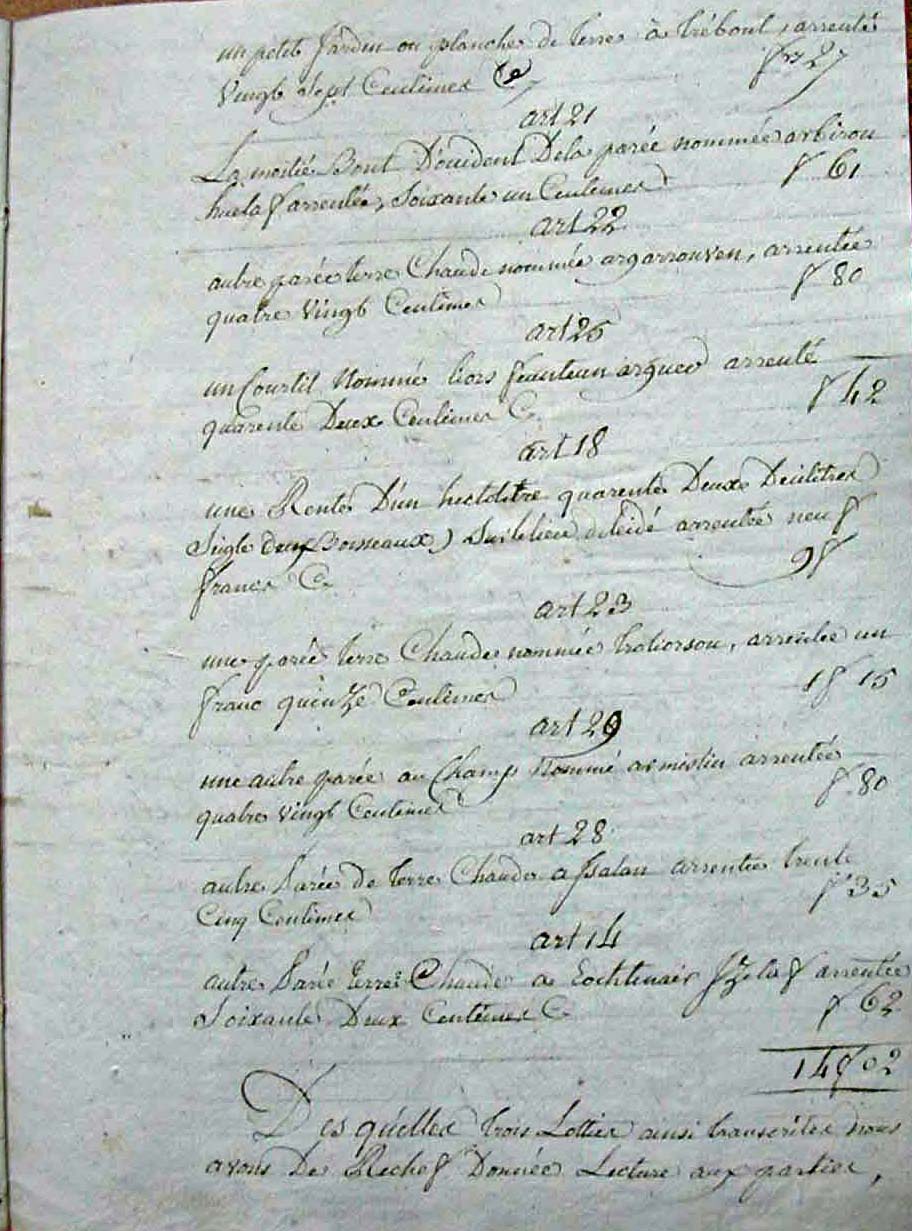 un petit jardin ou planche de terre à tréboul, arrenté
vingt sept Centimes C
frs 27
art 21
La moitié Bout D'occident Dela parée nommée arbirou
huela f arrentée, Soixante un Centimes
f 61
art 22
autre parée terre Chaude nommée argarrouven, arrentée
quatre Vingt Centimes
f 80
art 25
un Courtil Nommé liors feunteun arguer arrenté
quarente Deux Centimes C
f 42
art 18
une Rente D'un hectolitre quarente Deux Decilitres
Seigle deux Boisseaux) Sur le lieu arrentée neuf
francs C
9f
art 23
une parée terre Chaude nommée troliorsou, arrentée un
franc quinze Centimes
1f 15
art 29
une autre parée au Champ Nommé armeslin arrentée
quatre vingt Centimes
f 80
art 28
autre Parée de terre Chaude a arrentée trente
Cinq Centimes
f 35
art 14
autre Parée terre Chaude a Izelaf arrentée
Soixante Deux Centimes C
f 62
14f 02
Desquelles trois Lotties ainsi transcrites nous
avons De Rechef Donnée Lecture aux parties,